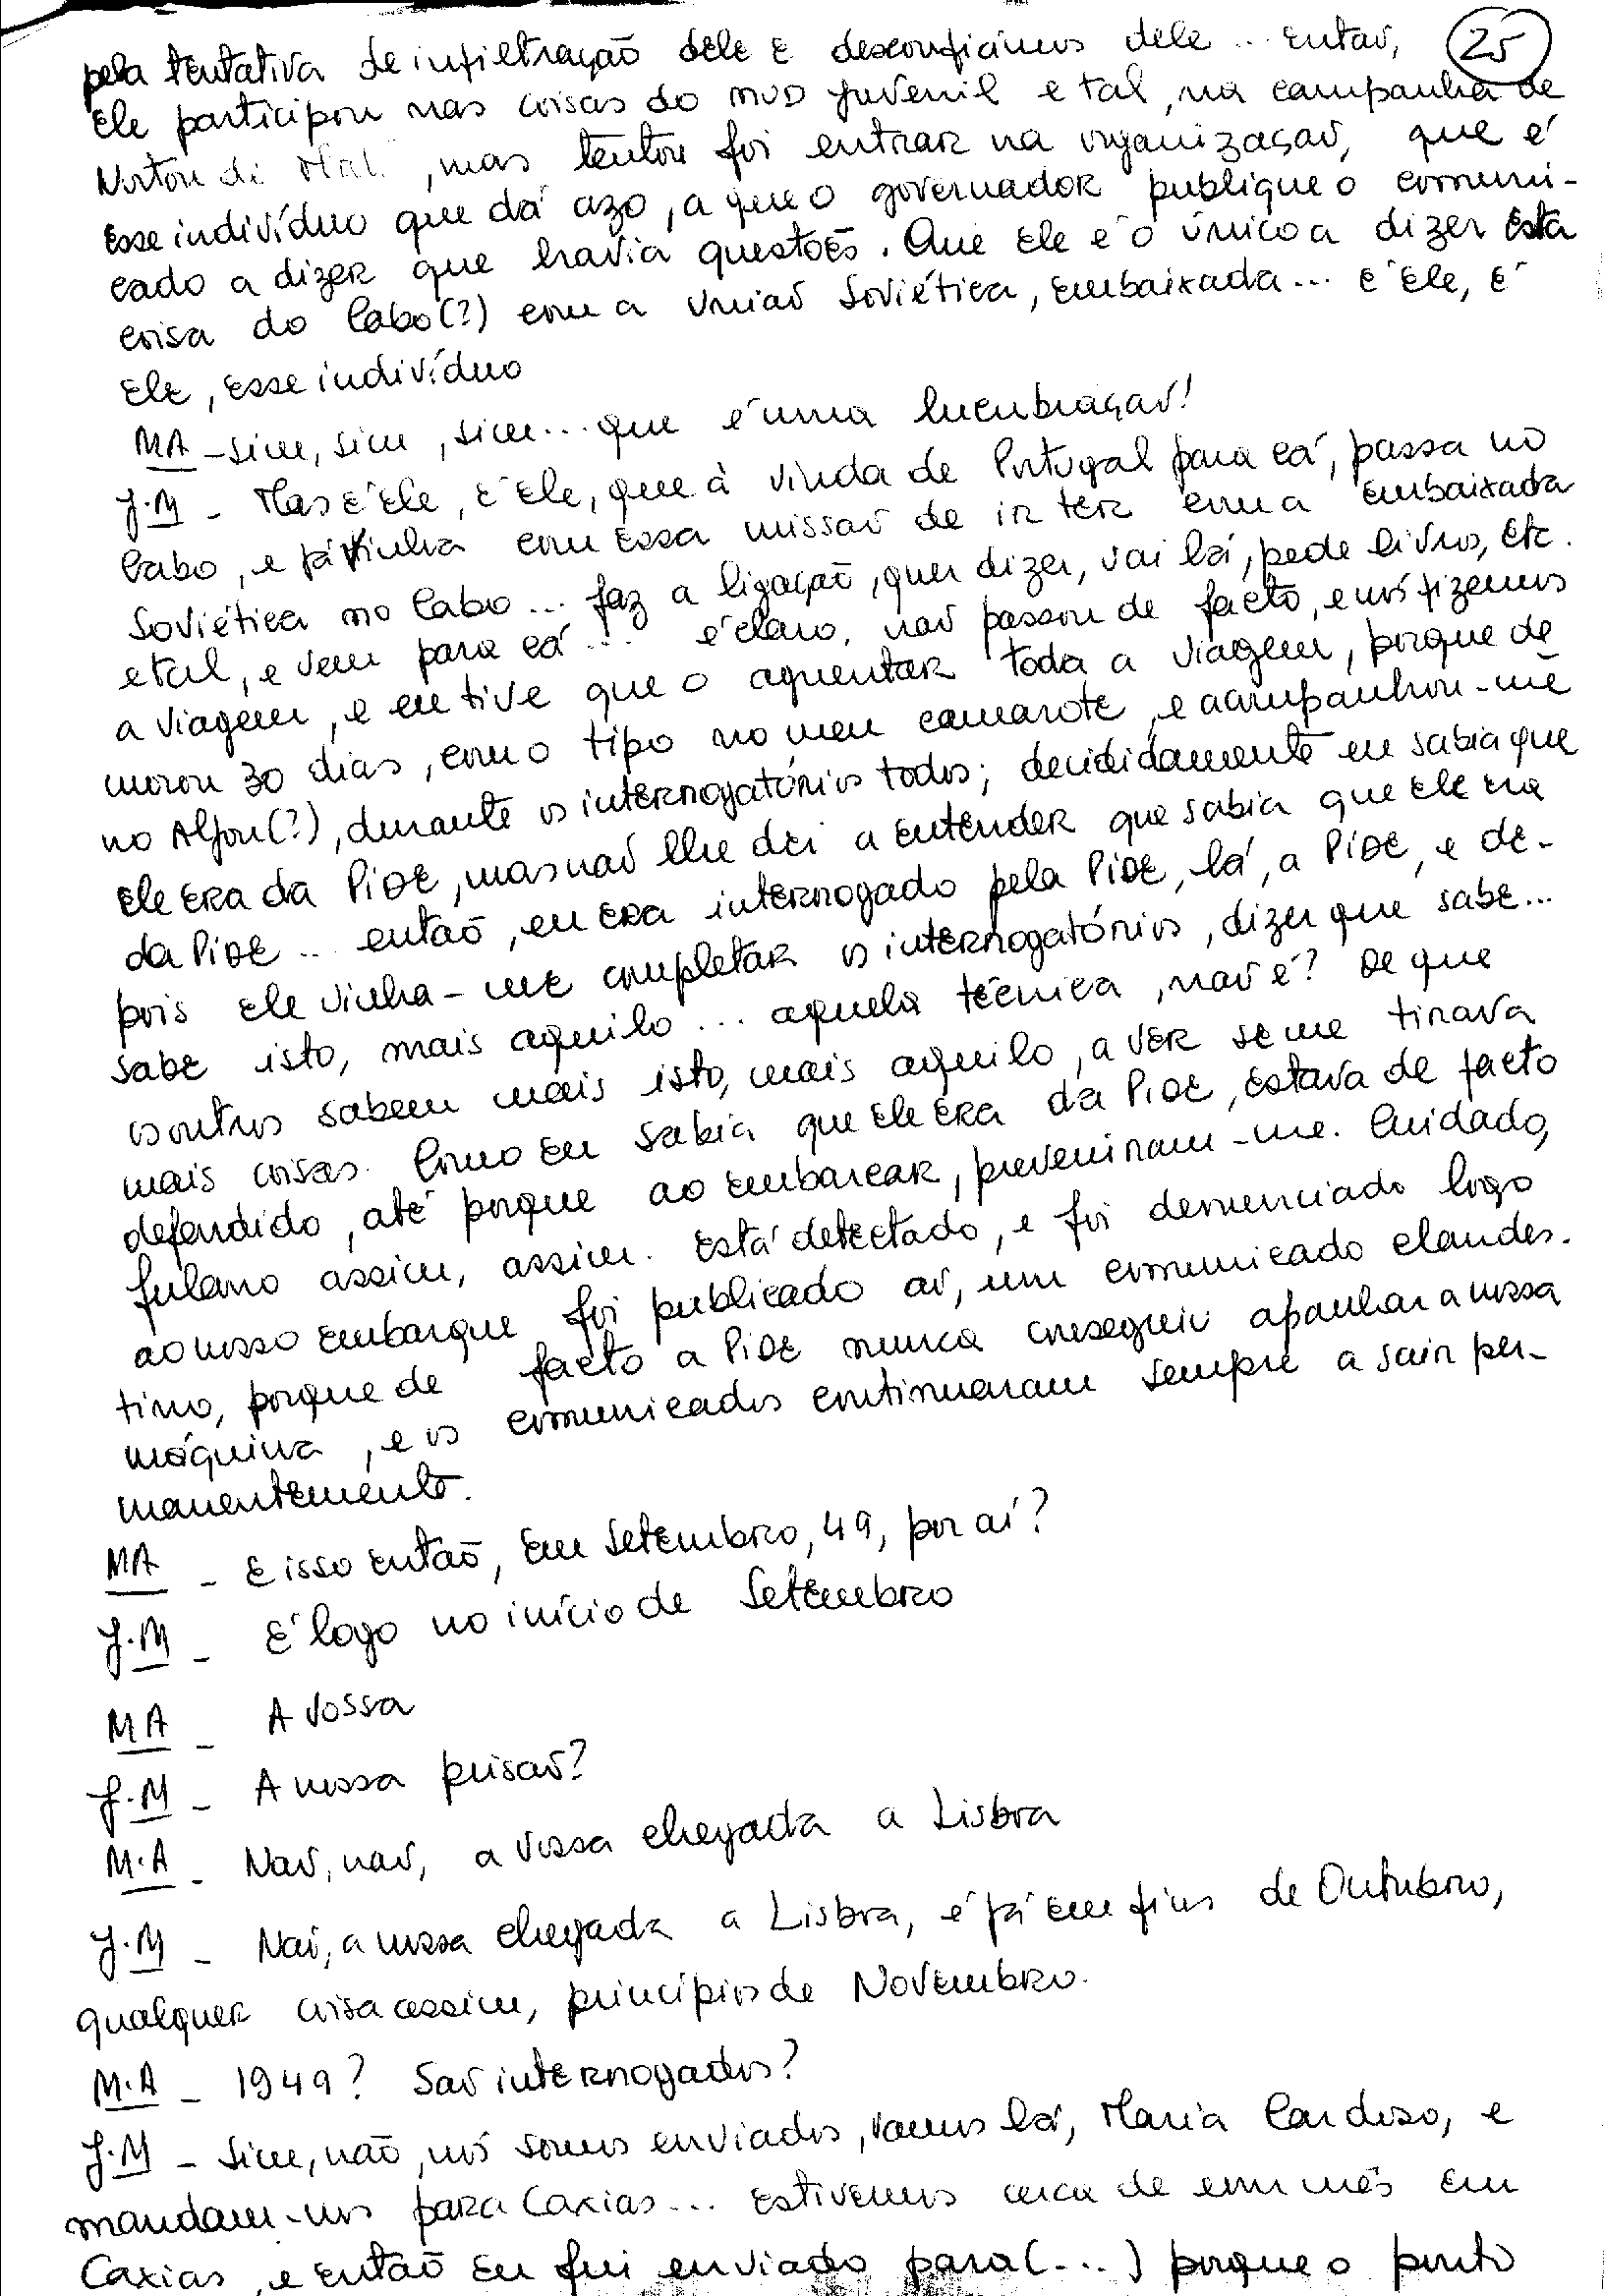 pela tentativa de infiltração dele e desconfiámos dele... então, 25
Ele participou nas coisas do MUD Juvenil e tal, na campanha de
Norton de Mat, mas tentou foi entrar na organização, que é
esse indivíduo que dá azo, a que o governador publique o comuni-
cado a dizer que havia questões. Que ele é o único a dizer esta
coisa do Cabo(?) com a União Soviética, embaixada... é ele, é
ele, esse indivíduo
MA - sim, sim, sim... que é uma lucubração!
J.M - Mas é ele, é ele, que à vinda de Portugal para cá, passa no
Cabo, e já vinha com essa missão de ir ter com a embaixada
Soviética no Cabo... faz a ligação, quer dizer, vai lá, pede livros, etc.
e tal, e vem para cá... é claro, não passou de facto, e nós fizemos
a viagem, e eu tive que o aguentar toda a viagem, porque de
morou 30 dias, com o tipo no meu camarote, e acompanhou-me
no Aljou(?), durante os interrogatórios todos; decididamente eu sabia que
ele era da PIDE, mas não lhe dei a entender que sabia que ele era
da PIDE... então, eu era interrogado pela PIDE, lá, a PIDE, e de-
pois ele vinha-me completar os interrogatórios, dizer que sabe...
sabe isto, mais aquilo... aquela técnica, não é? De que
os outros sabem mais isto, mais aquilo, a ver se me tirava
mais coisas. Como eu sabia que ele era da PIDE, estava de facto
defendido, até porque ao embarcar, preveniram-me. Cuidado,
fulano assim, assim. Está detectado, e foi denunciado logo
ao nosso embarque, foi publicado aí, um comunicado clandes-
tino, porque de facto a PIDE nunca conseguiu apanhar a nossa
máquina, e os comunicados continuaram sempre a sair per-
manentemente.
MA - E isso então, em Setembro, 49, por aí?
J.M - É logo no início de Setembro
MA - A vossa
J.M - A nossa prisão?
M.A - Não, não, a vossa chegada a Lisboa
J.M - Não, a nossa chegada a Lisboa, é já em fins de Outubro,
qualquer coisa assim, princípios de Novembro.
M.A - 1949? São interrogados?
J.M - Sim, não, nós somos enviados, vamos lá, Maria Cardoso, e
mandam-nos para Caxias... Estivemos cerca de um mês em
Caxias, e então eu fui enviado para (...) porque o ponto